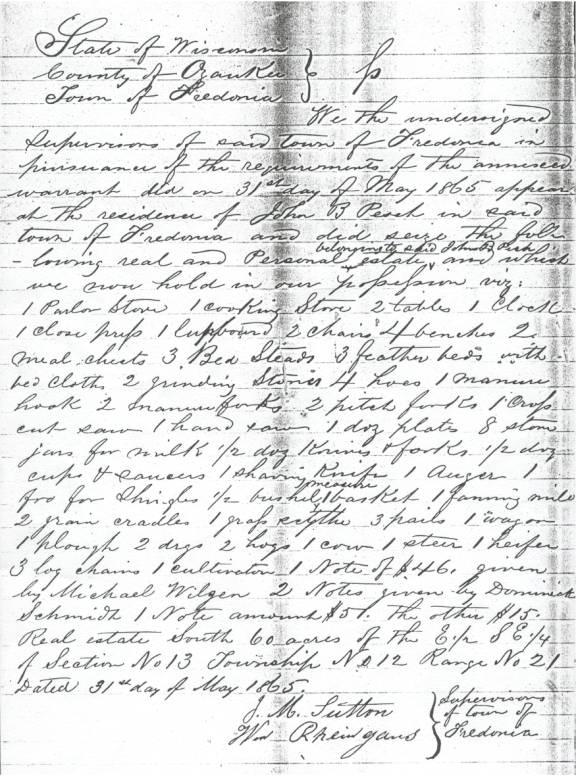 State of Wisconsin
County of Ozaukee } ss
Town of Fredonia
We the undersigned
Supervisors of said town of Fredonia in
pursuance of the requirements of the annexed
warrant did on 31st day of May 1865 appear
at the residence of John B Pesch in said
town of Fredonia and did seize the fol-
belonging to said John B Pesch
-lowing real and Personal estate, and which
we now hold in our possession viz:
1 Parlor Stove 1 cooking Stove 2 tables 1 Clock
1 close press 1 Cupbourd 2 chairs 4 benches 2
meal chests 3 Bed Steads 3 feather beds with
bed cloths 2 grinding Stones 4 hoes 1 manure
hook 2 manure forks 2 pitch forks 1 Cross
cut saw 1 hand saw 1 doz plates 8 stone
jars for milk 1/2 doz Knives & forks 1/2 doz
cups & saucers 1 shaving Knife 1 Auger 1
measure
fro for Shingles 1/2 bushel 1 basket 1 fanning mill
2 grain cradles 1 grass scythe 3 pails 1 wagon
1 plough 2 drgs 2 hogs 1 cow 1 steer 1 heifer
3 log chains 1 cultivator 1 Note of $46. given
by Michael Wilgen 2 Notes given by Dominick
Schmidt 1 Note amount $51. the other $15.
Real estate South 60 acres of the E.1/2 S E.1/4
of Section No 13 Township No 12 Range No 21
Dated 31st day of May 1865.
J. M. Sutton } Supervisors
Wm Rheingans of town of
Fredonia